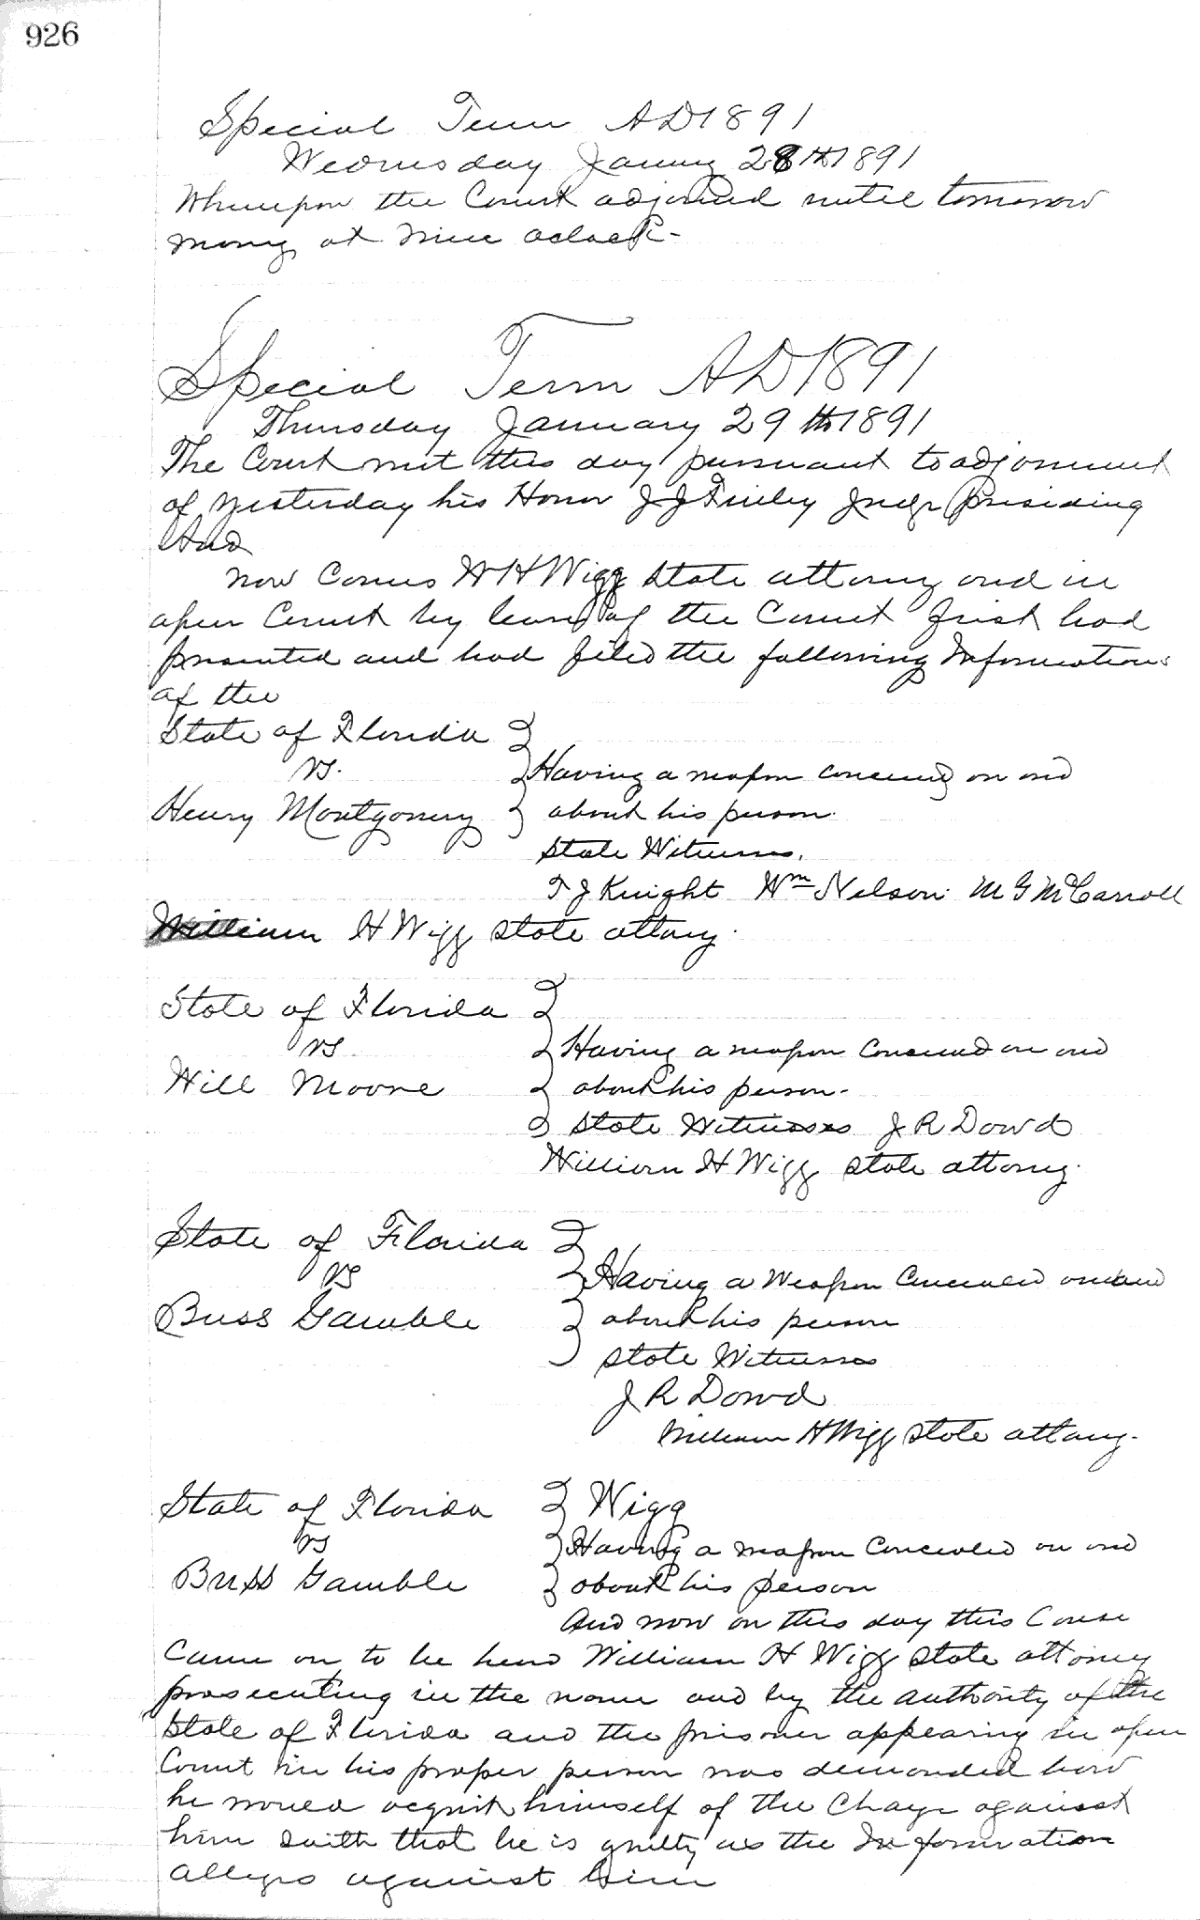 926
Special Term AD 1891
Wednesday January 28th 1891
Whereupon the Court adjourned until tomorrow
morng at nine oclock-
Special Term AD 1891
Thursday January 29th 1891
The Court met this day pursuant to adjornment
of yesterday his Honor J J Finley Judge Presiding
And
now Comes W H Wigg State attorney and in
open Court by leave of the Court first had
presented and had filed the following Informations
of the
State of Florida
vs.
Having a weapon concealed on and
Henry Montgomery
about his person.
State Witnesses.
T J Knight Wm Nelson M G McCarroll
William H Wigg state attorny.
State of Florida
vs
Having a weapon concealed on and
Will Moore
about his person-
State Witnesses J R Dowd
William H Wigg state attorny.
State of Florida
vs
Having a Weapon Concealed on and
Buss Gamble
about his person
State Witnesses
J R Dowd
William H Wigg state attorny.
State of Florida
Wigg
vs
Having a weapon Concealed on and
Buss Gamble
about his person
And now on this day this Cause
Came on to be heard William H Wigg state attorney
prosecuting in the name and by the authority of the
State of Florida and the prisoner appearing in open
Court in his proper person was demanded how
he would acquit himself of the Charge against
him saith that he is guilty as the Information
alleges against him